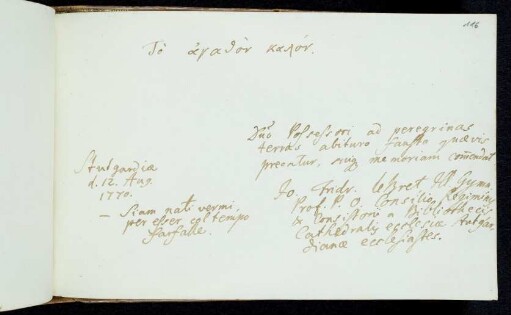 116
Τὸ ἀγαθὸν καλόν.
Dno Possessori ad peregrinas
terras abituro fausta quævis
precatur, suiq memoriam com̄endat
Jo. Andr. leBret Ill. Gymn.
Prof. P. O. Consilior. Regiminis
& Consistorii a Bibliothecis
Cathedralis ecclesiæ Stutgar
dianæ ecclesiastes.
Stutgardia
d. 12. Aug.
1770.
— Siam nati vermi,
per esser col tempo
farfalle.